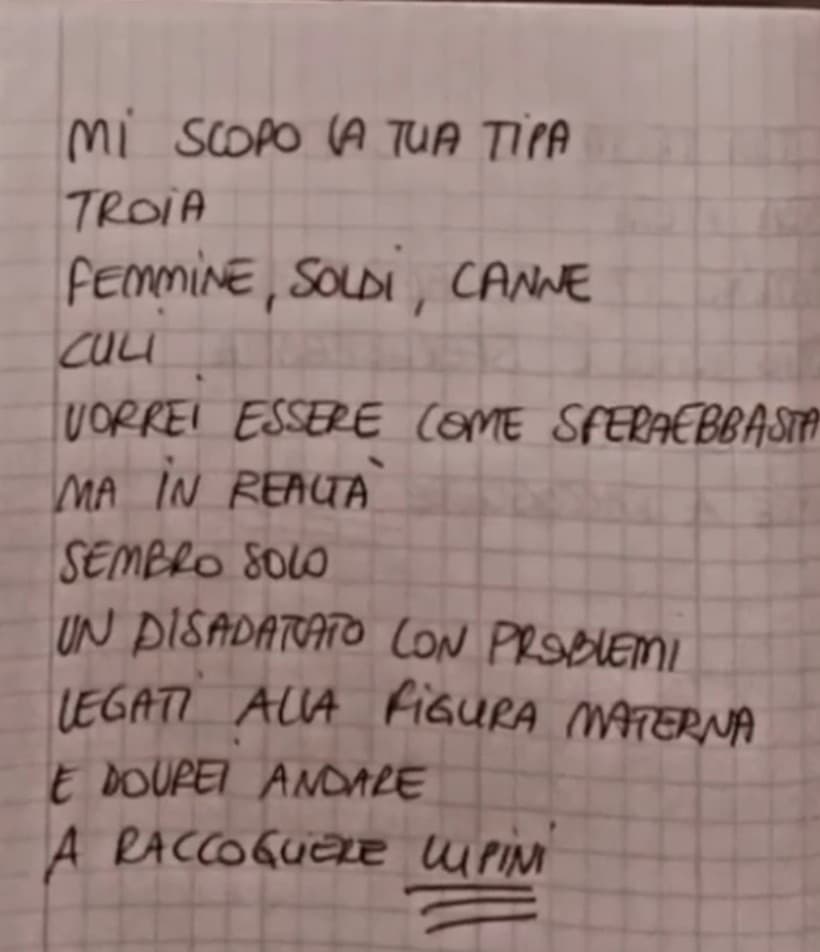 MI SCOPO LA TUA TIPA
TROIA
FEMMINE, SOLDI, CANNE
CULI
VORREI ESSERE COME SFERAEBBASTA
MA IN REALTÀ
SEMBRO SOLO
UN DISADATTATO CON PROBLEMI
LEGATI ALLA FIGURA MATERNA
E DOVREI ANDARE
A RACCOGLIERE LUPINI